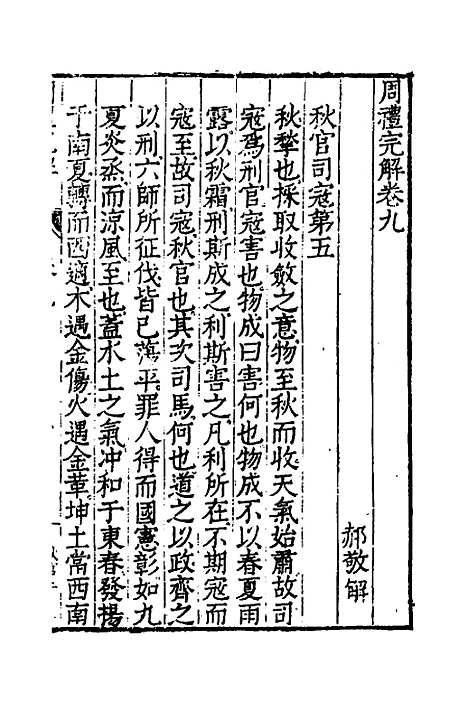 周禮完解卷九
郝敬解
秋官司寇第五
秋揫也揫取收斂之意物至秋而收天氣始肅故司
寇爲刑官寇害也物成曰害何也物成不以春夏雨
露以秋霜刑斯成之利斯害之凡利所在不期寇而
寇至故司寇秋官也其次司馬何也道之以政齊之
以刑六師所征伐皆已蕩平罪人得而國憲彰如九
夏炎烝而涼風至也蓋水土之氣冲和于東春發揚
于南夏轉而西適木遇金傷火遇金革坤土常西南